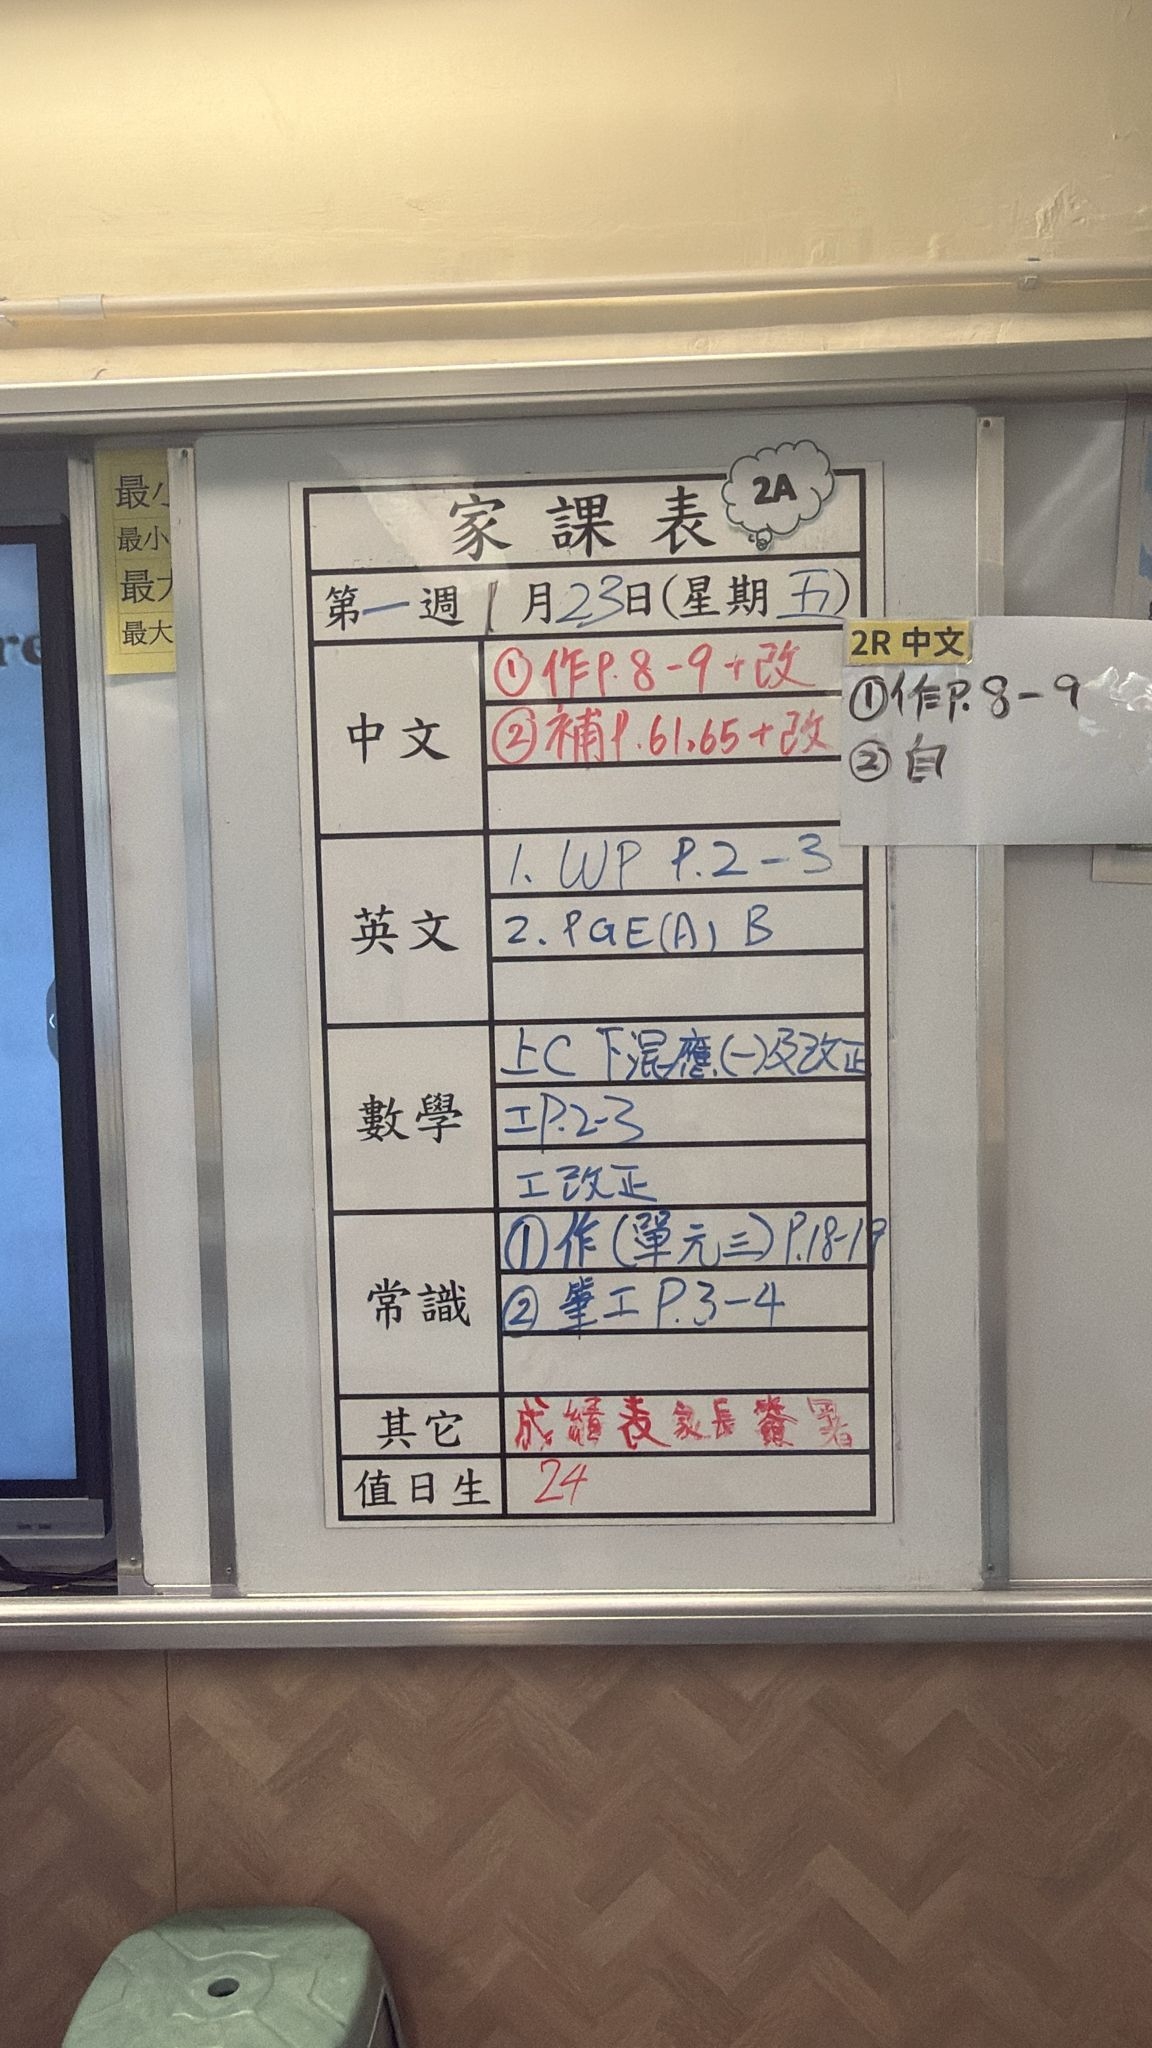 最小
最小
最大
最大
re
2A
家課表
第一週 1月23日(星期五)
中文
①作P.8-9+改
②補P.61,65+改
2R 中文
①作P.8-9
②自
英文
1. WP P.2-3
2. PGE(A) B
數學
上C 下混應(一)及改正
工P.2-3
工改正
常識
①作(單元三)P.18-19
②筆工P.3-4
其它
成績表家長簽署
值日生
24